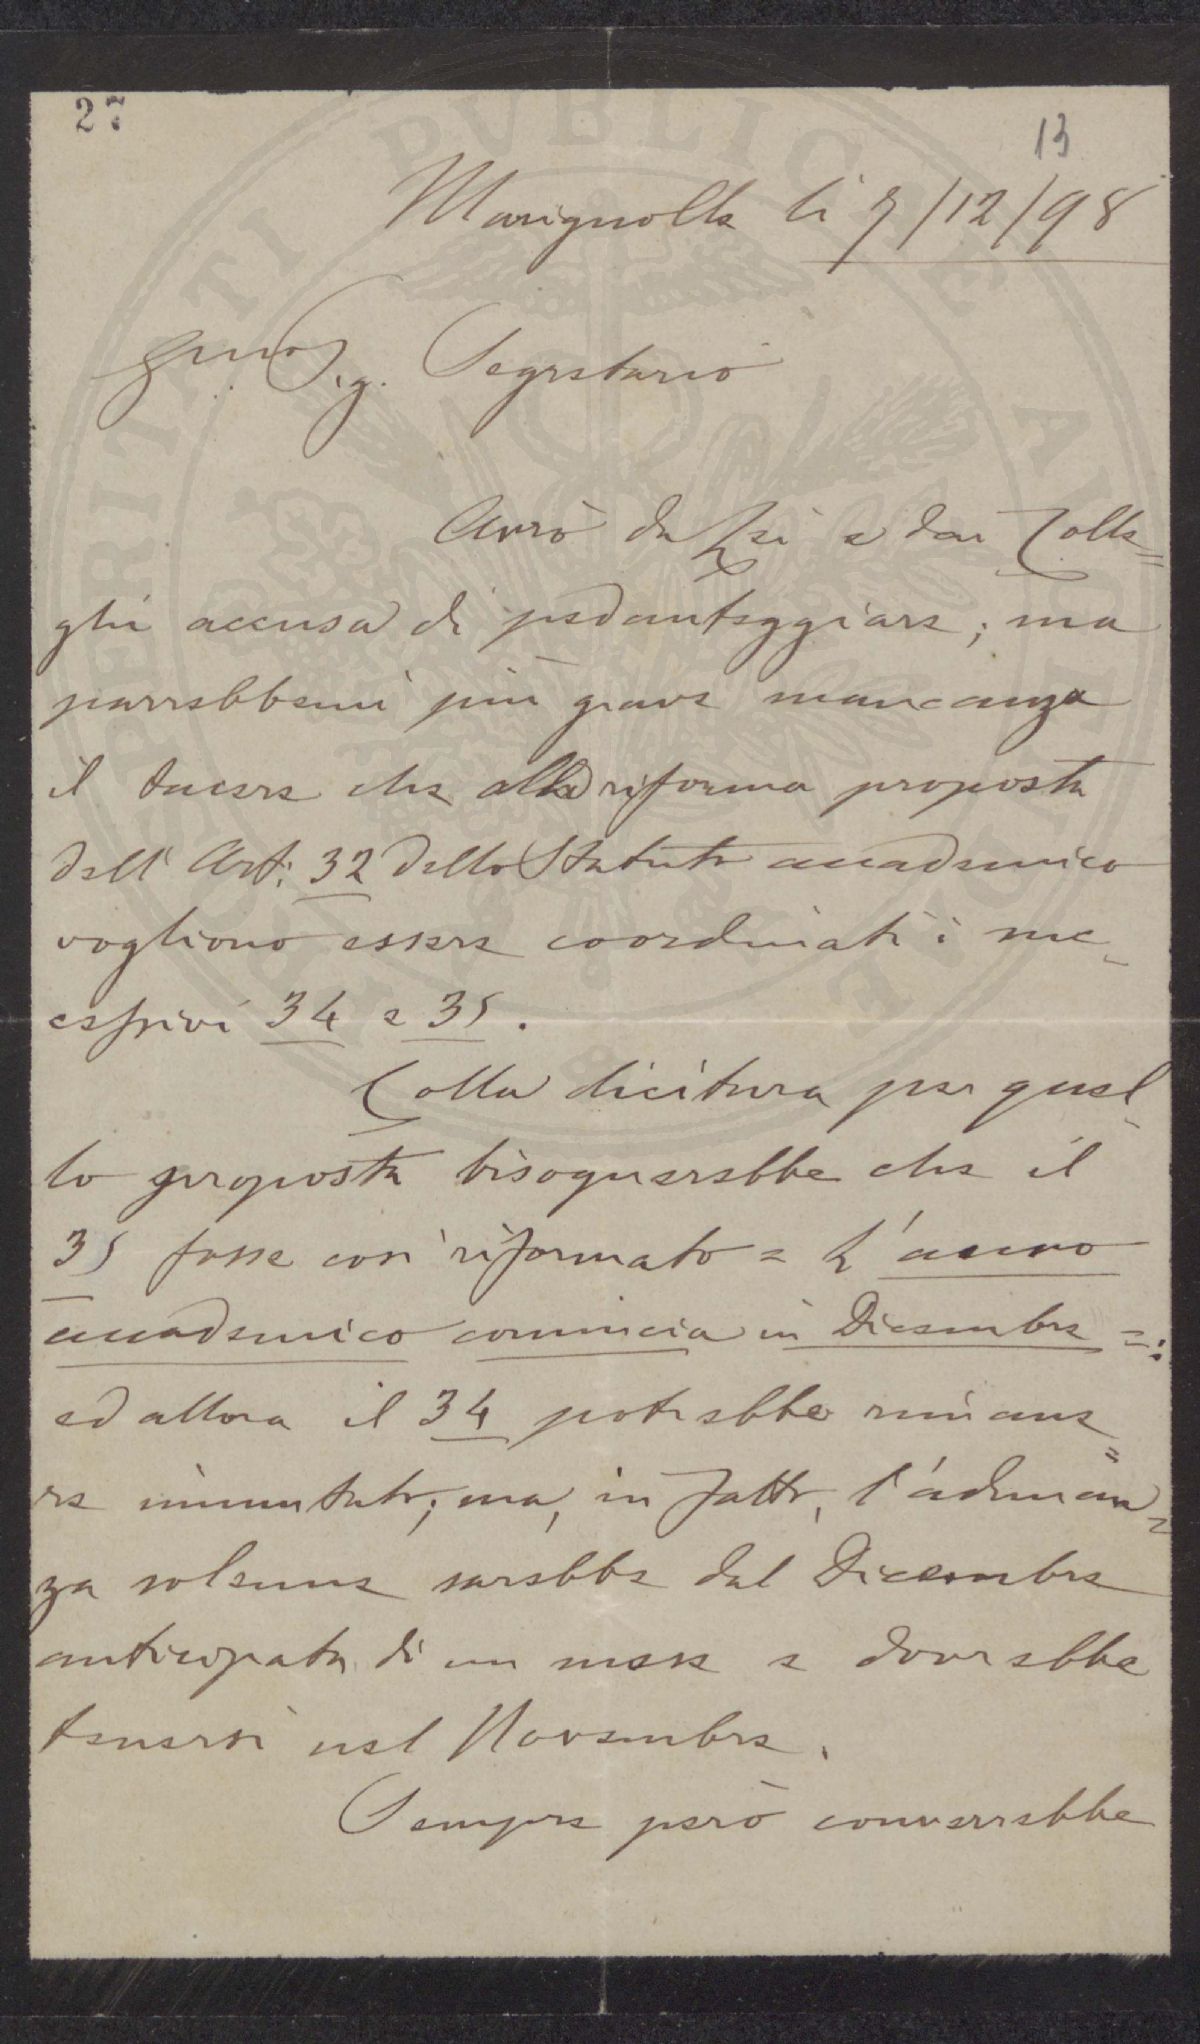 27
13
Marignolle li 7/12/98
Sig. Segretario
Avrò da Lei e dai Colle=
ghi accusa di pedanteggiare; ma
parrebbemi più grave mancanza
il tacere che alla riforma proposta
dell'Art: 32 dello Statuto accademico
vogliono essere coordinati i suc-
cessivi 34 e 35.
Colla dicitura per quel-
lo proposta bisognerebbe che il
35 fosse così riformato = L'anno
accademico comincia in Dicembre =:
ed allora il 34 potrebbe rimane=
re immutato; ma, in fatto, l'adunan=
za solenne sarebbe dal Dicembre
anticipata di un mese e dovrebbe
tenersi nel Novembre.
Sempre però converrebbe